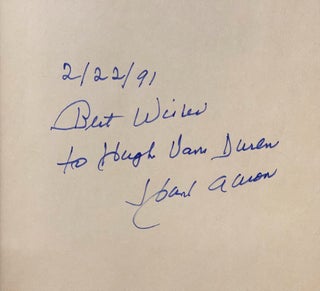 2/22/91
Best Wishes
to Hugh Van Duren
Hank Aaron